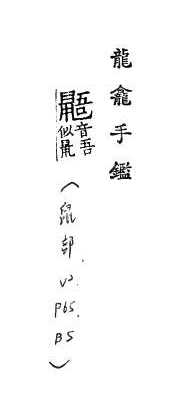 龍龕手鑑
䶃音吾似鼠
（鼠部.V2.P65.B5）